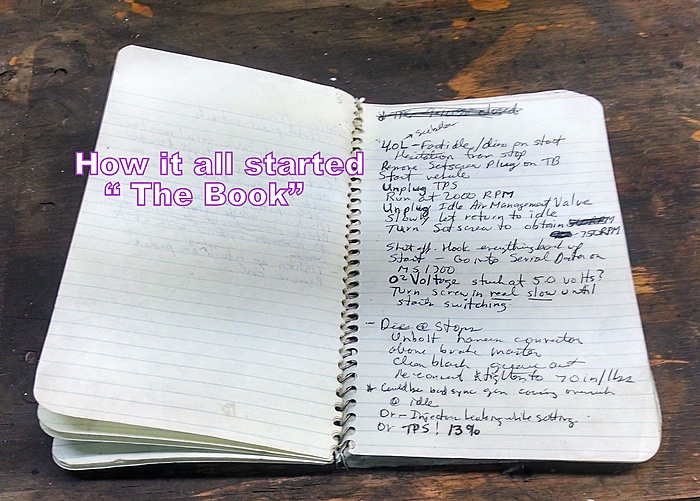 How it all started
“ The Book”
subdue
4.0L - Fast idle/dies on start
Hesitation from stop
Remove Setscrew Plug on TB
Start vehicle
Unplug TPS
Run at 2000 RPM
Unplug Idle Air Management Valve
Slowly let return to idle
Turn Setscrew to obtain
- 750RPM
Shut off. Hook everything back up
Start - Go into Serial Data on
MS1700
O2 Voltage stuck at 5.0 volts?
Turn screw in real slow until
starts switching.
- Dies @ Stops
Unbolt harness connector
above brake master
Clean black grease out
Re-connect & tighten to 70 in/lbs
* Could be bad sync gen causing
@ idle
Or - Injector leaking while sitting.
Or TPS! 13%